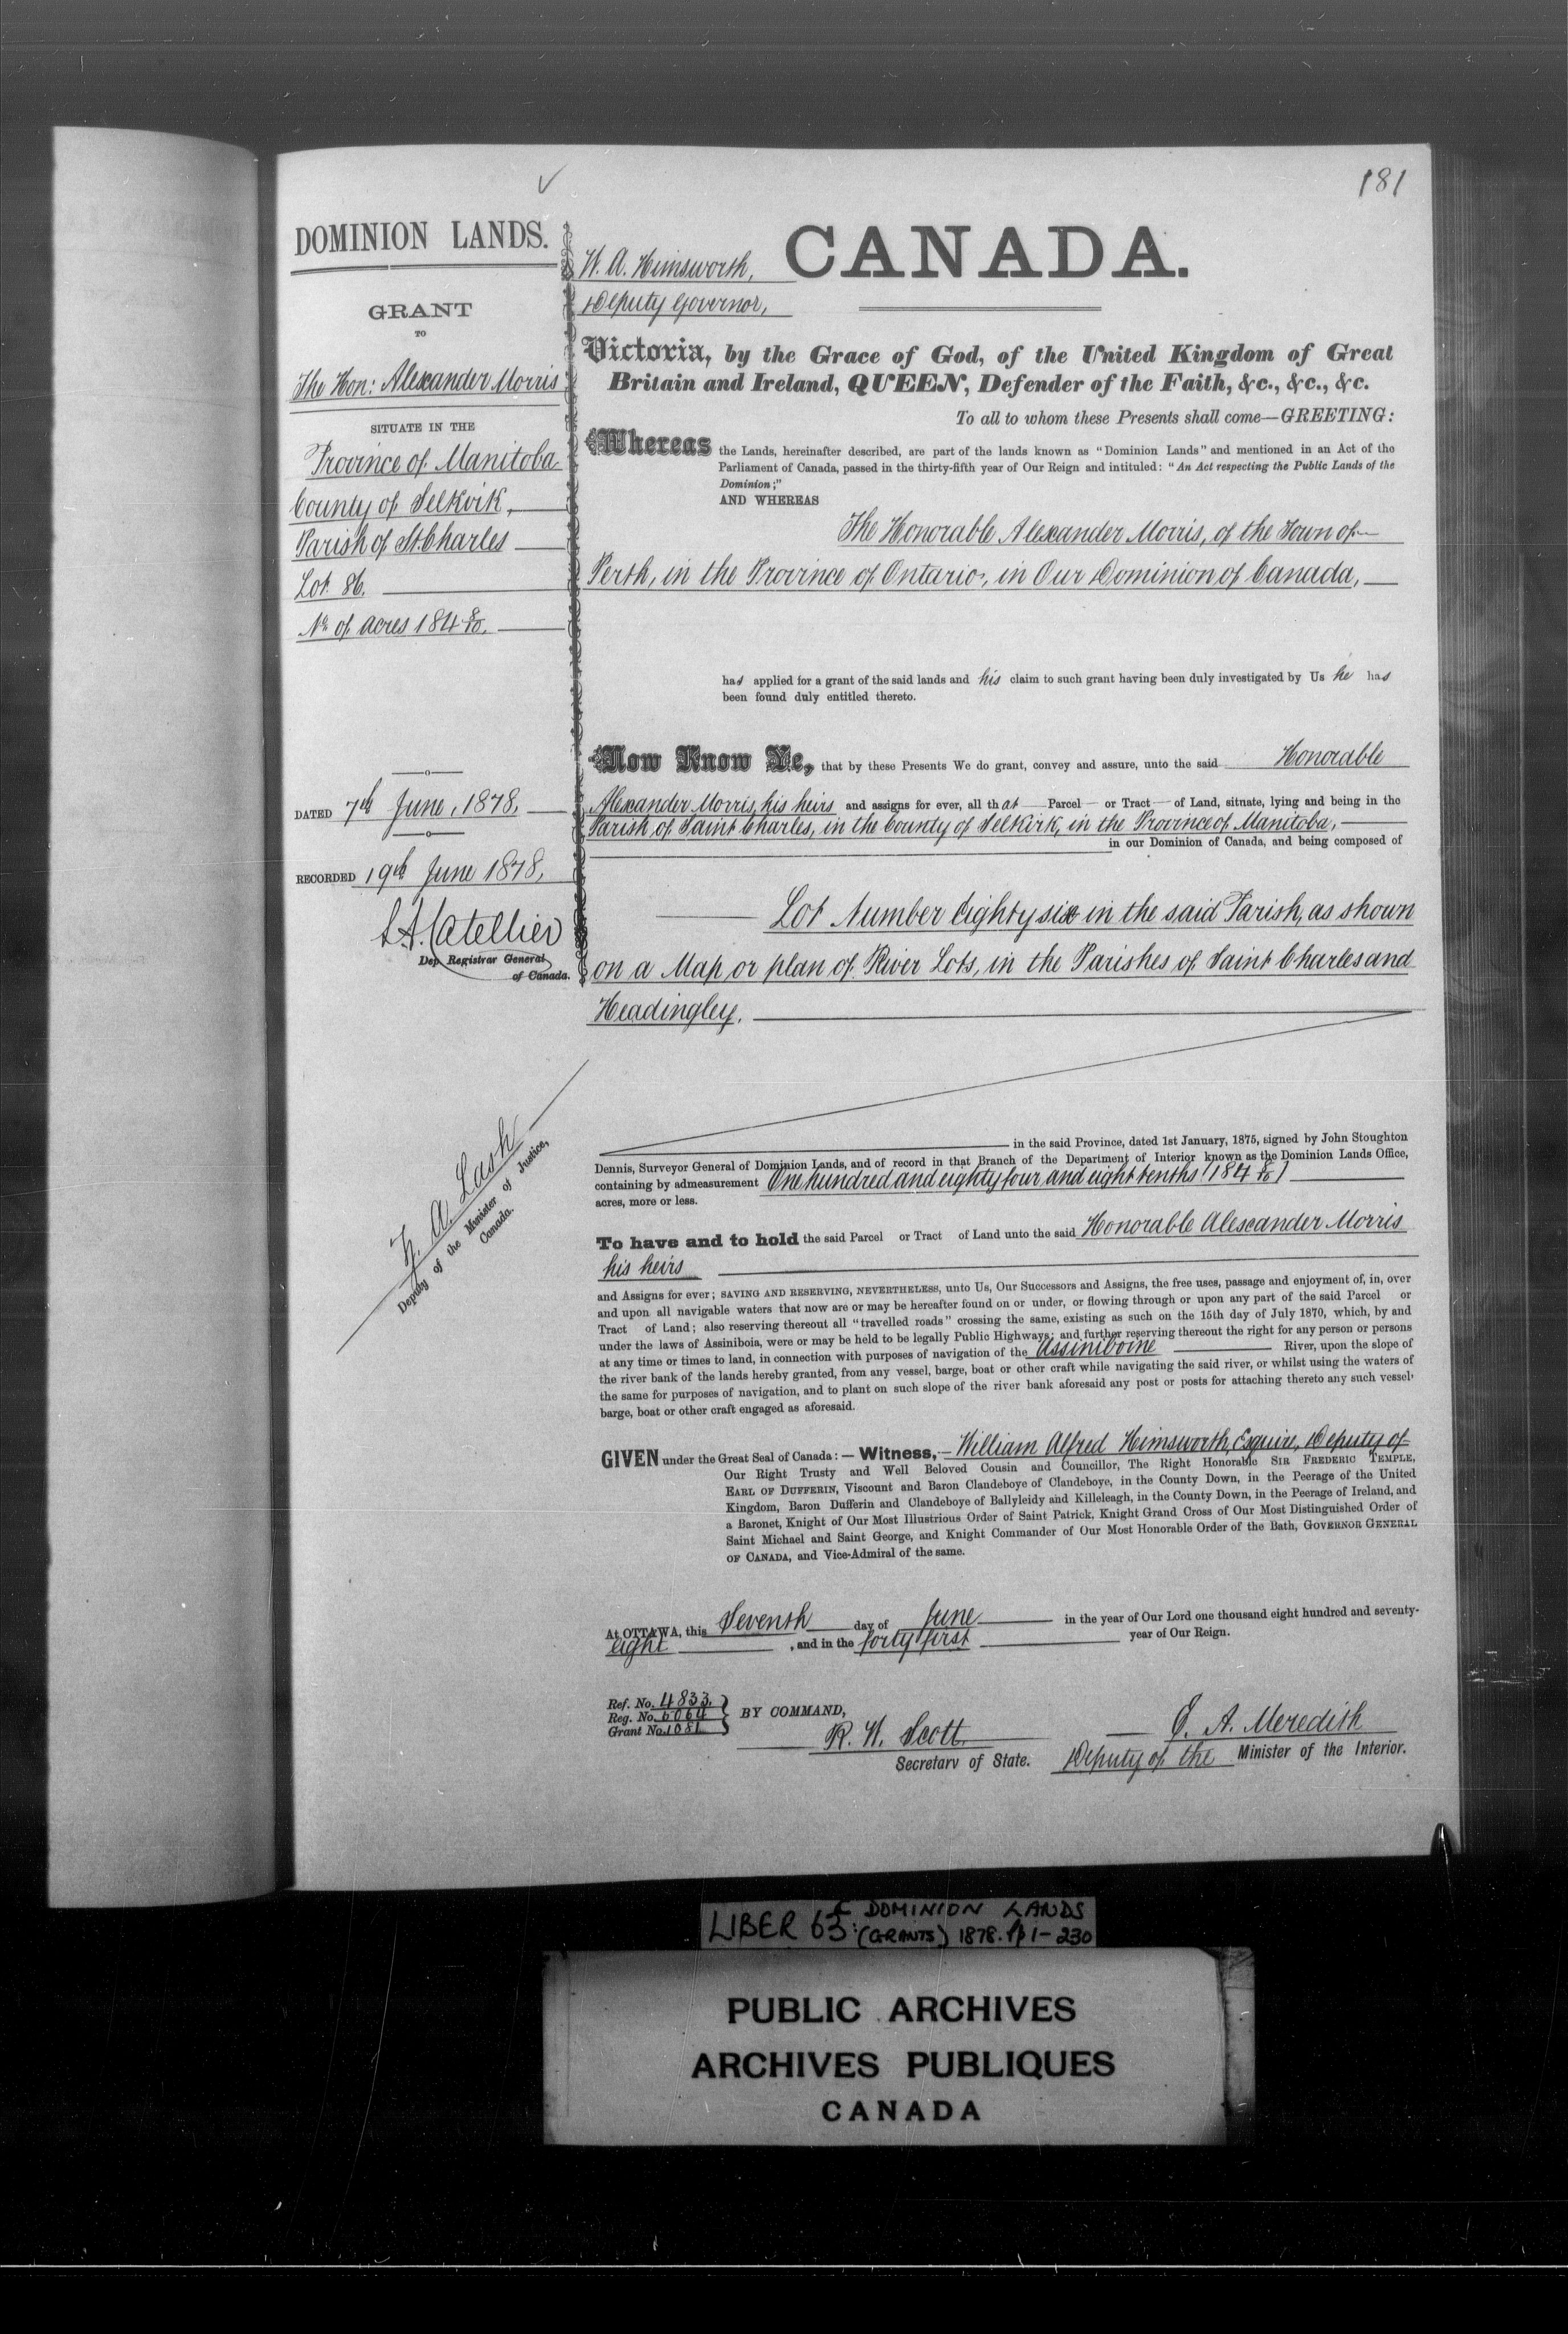 181
DOMINION LANDS.
GRANT
TO
The Hon: Alexander Morris
SITUATE IN THE
Province of Manitoba
County of Selkirk,
Parish of St. Charles
Lot 86.
No. of acres 184 8/10.
DATED 7th June, 1878,
RECORDED 19th June 1878,
L. A. Catellier
Dep Registrar General
of Canada.
Z. A. Lash
Deputy of the Minister of Justice,
Canada.
W. A. Himsworth,
Deputy Governor,
CANADA.
Victoria, by the Grace of God, of the United Kingdom of Great
Britain and Ireland, QUEEN, Defender of the Faith, &c., &c., &c.
To all to whom these Presents shall come—GREETING:
Whereas the Lands, hereinafter described, are part of the lands known as "Dominion Lands" and mentioned in an Act of the
Parliament of Canada, passed in the thirty-fifth year of Our Reign and intituled: "An Act respecting the Public Lands of the
Dominion;"
AND WHEREAS
The Honorable Alexander Morris, of the Town of
Perth, in the Province of Ontario, in Our Dominion of Canada,
has applied for a grant of the said lands and his claim to such grant having been duly investigated by Us he has
been found duly entitled thereto.
Now Know Ye, that by these Presents We do grant, convey and assure, unto the said Honorable
Alexander Morris, his heirs and assigns for ever, all that Parcel or Tract of Land, situate, lying and being in the
Parish of Saint Charles, in the County of Selkirk, in the Province of Manitoba,
in our Dominion of Canada, and being composed of
Lot Number Eighty six in the said Parish, as shown
on a Map or plan of River Lots, in the Parishes of Saint Charles and
Headingley.
in the said Province, dated 1st January, 1875, signed by John Stoughton
Dennis, Surveyor General of Dominion Lands, and of record in that Branch of the Department of Interior known as the Dominion Lands Office,
containing by admeasurement One hundred and eighty four and eight tenths (184 8/10)
acres, more or less.
To have and to hold the said Parcel or Tract of Land unto the said Honorable Alexander Morris
his heirs
and Assigns for ever; SAVING AND RESERVING, NEVERTHELESS, unto Us, Our Successors and Assigns, the free uses, passage and enjoyment of, in, over
and upon all navigable waters that now are or may be hereafter found on or under, or flowing through or upon any part of the said Parcel or
Tract of Land; also reserving thereout all "travelled roads" crossing the same, existing as such on the 15th day of July 1870, which, by and
under the laws of Assiniboia, were or may be held to be legally Public Highways; and further reserving thereout the right for any person or persons
at any time or times to land, in connection with purposes of navigation of the Assiniboine River, upon the slope of
the river bank of the lands hereby granted, from any vessel, barge, boat or other craft while navigating the said river, or whilst using the waters of
the same for purposes of navigation, and to plant on such slope of the river bank aforesaid any post or posts for attaching thereto any such vessel,
barge, boat or other craft engaged as aforesaid.
GIVEN under the Great Seal of Canada:—Witness,—William Alfred Himsworth, Esquire, Deputy of
Our Right Trusty and Well Beloved Cousin and Councillor, The Right Honorable SIR FREDERIC TEMPLE,
EARL OF DUFFERIN, Viscount and Baron Clandeboye of Clandeboye, in the County Down, in the Peerage of the United
Kingdom, Baron Dufferin and Clandeboye of Ballyleidy and Killeleagh, in the County Down, in the Peerage of Ireland, and
a Baronet, Knight of Our Most Illustrious Order of Saint Patrick, Knight Grand Cross of Our Most Distinguished Order of
Saint Michael and Saint George, and Knight Commander of Our Most Honorable Order of the Bath, GOVERNOR GENERAL
OF CANADA, and Vice-Admiral of the same.
At OTTAWA, this Seventh day of June in the year of Our Lord one thousand eight hundred and seventy-
eight, and in the forty first year of Our Reign.
Ref. No. 4833.
Reg. No. 6064
Grant No. 1081
BY COMMAND,
R. W. Scott
Secretary of State.
E. A. Meredith
Deputy of the Minister of the Interior.
LIBER 63: DOMINION LANDS
(GRANTS) 1878. pp 1-230
PUBLIC ARCHIVES
ARCHIVES PUBLIQUES
CANADA